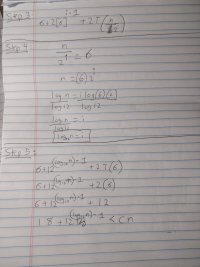 Step 3
6+2[6]^i-1 + 2T(n/2)
Step 4
n/2^i = 6
n = (6)2^i
log n = i log(6)(2)
log 12 log 12
log n = i
log 12
log₁₂n = i
Step 5:
6+12^(log₁₂n)-1 + 2T(6)
6+12^(log₁₂n)-1 + 2(6)
6+12^(log₁₂n)-1 + 12
18+12^(log₁₂n)-1 < cn